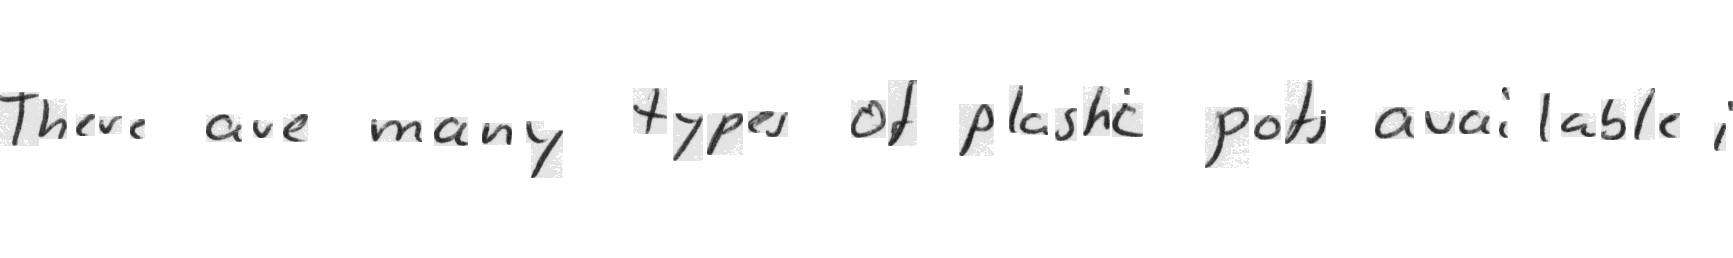 There are many types of plastic pots available ;